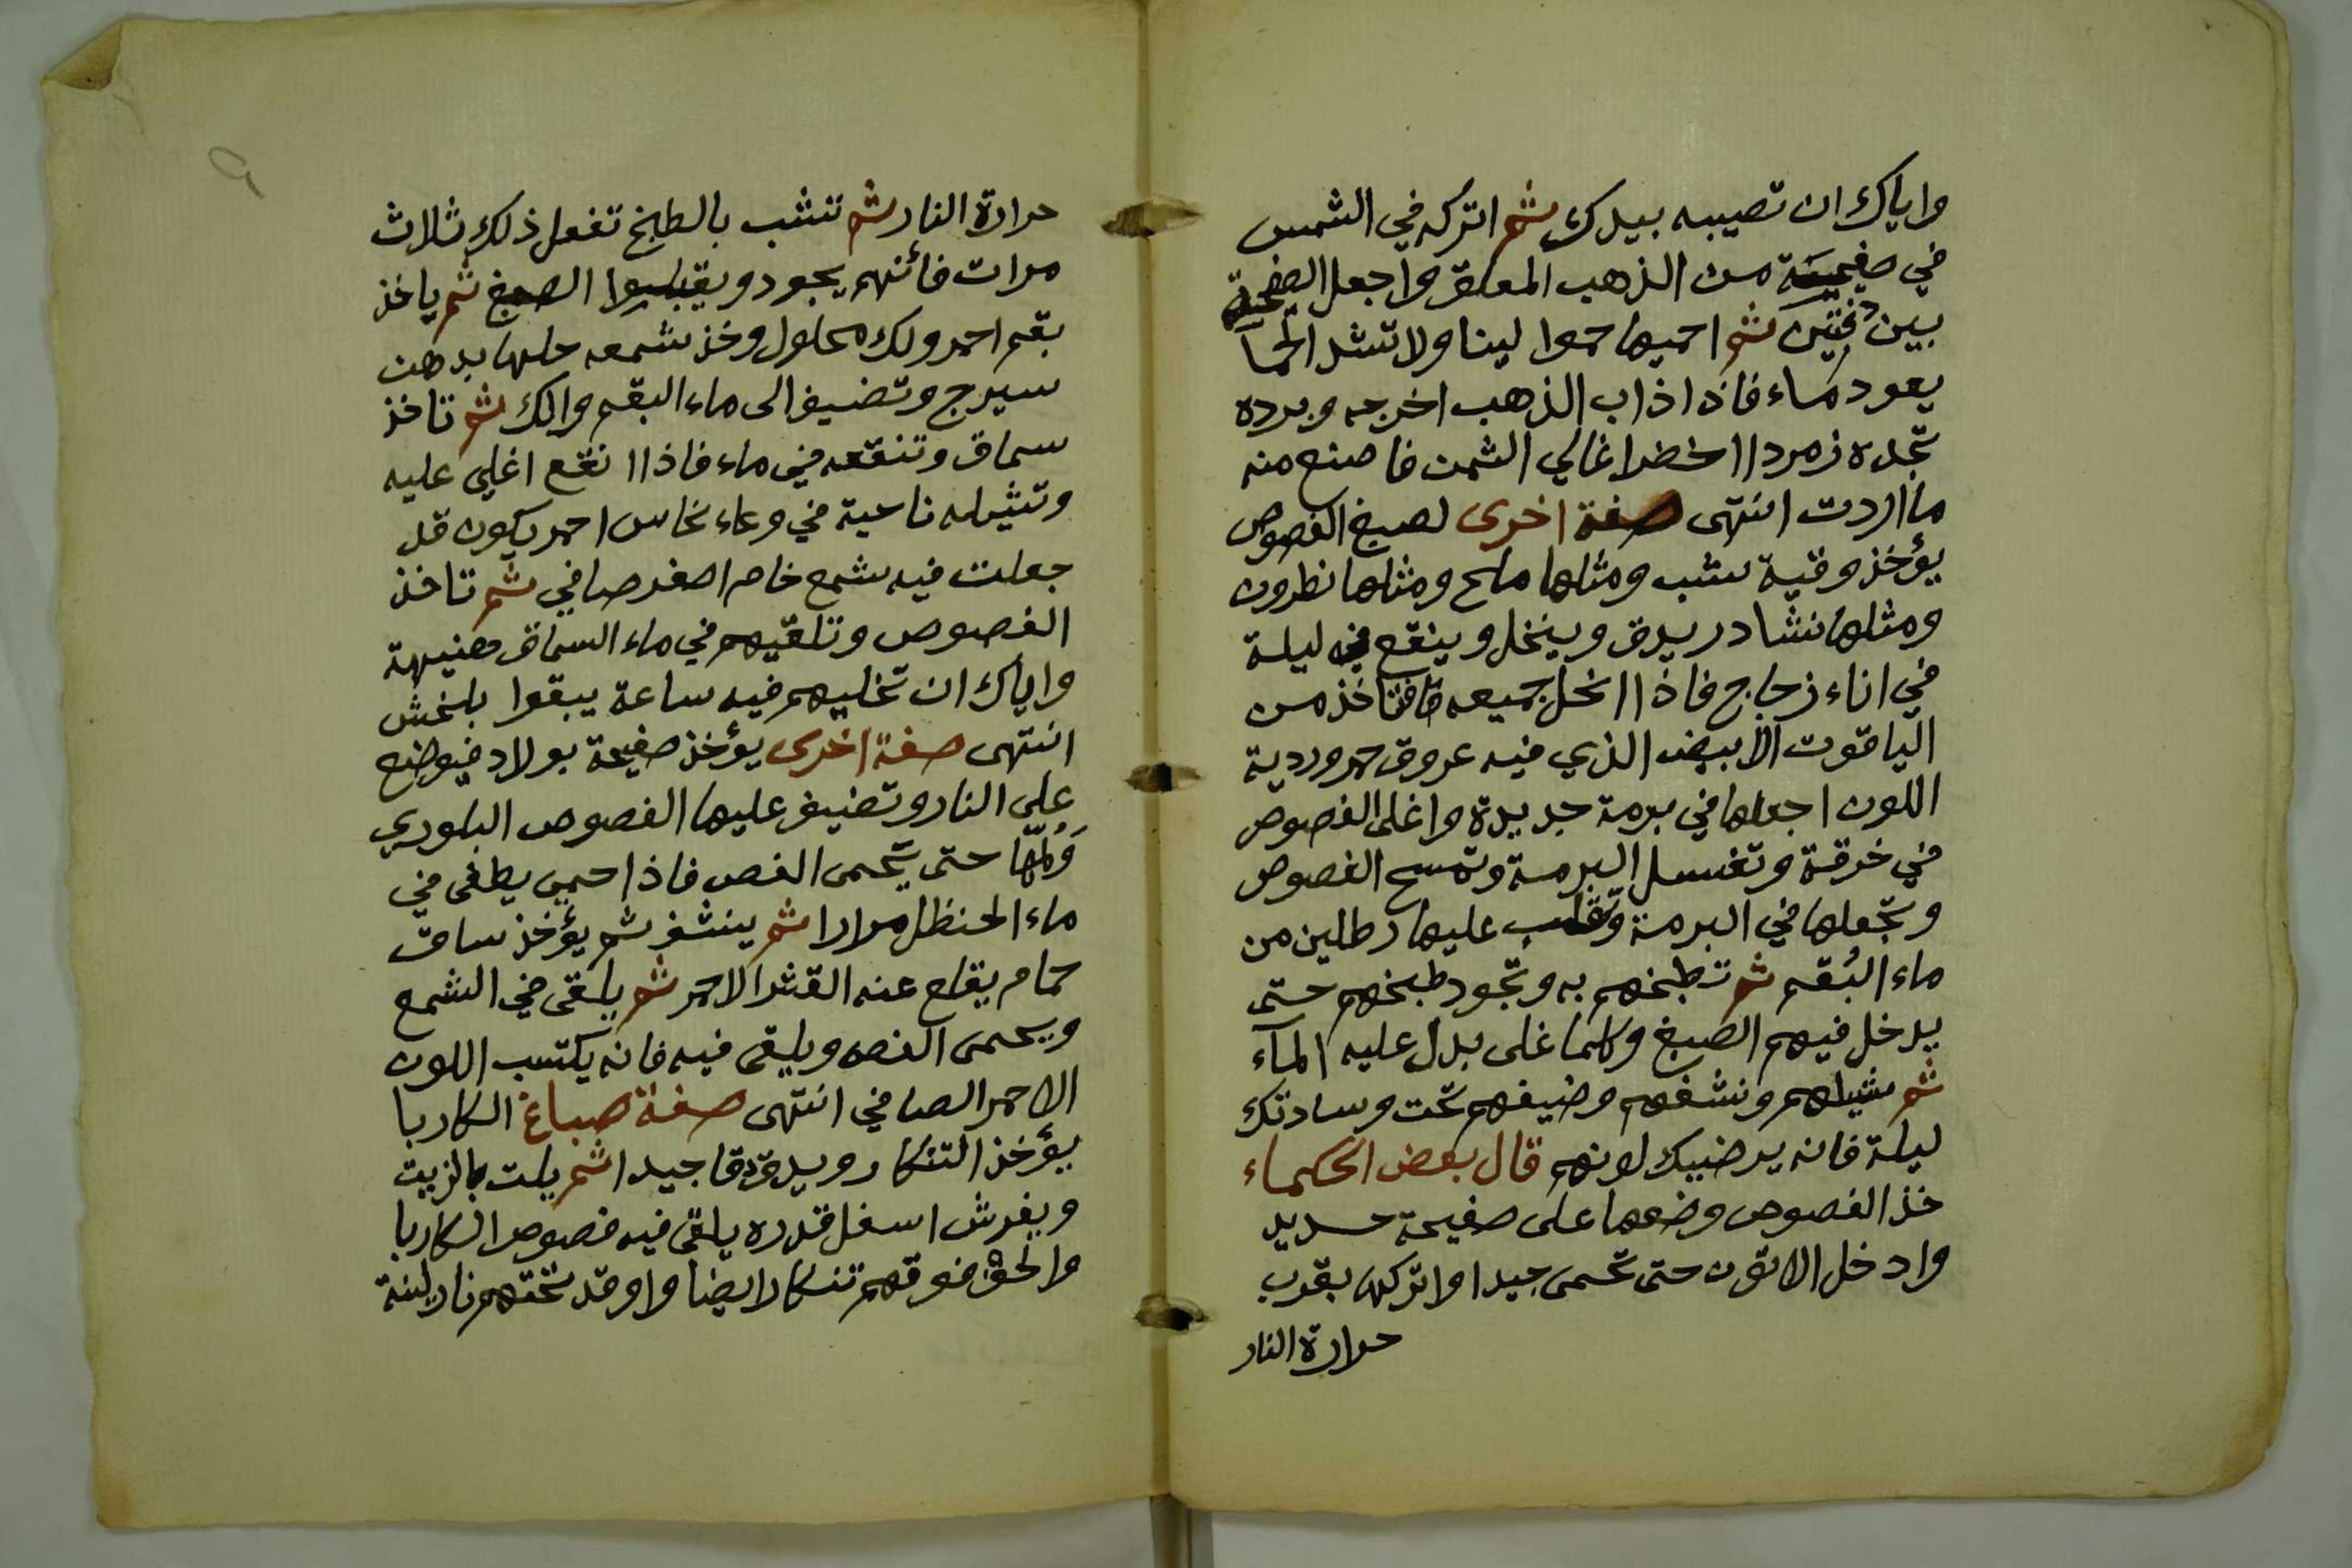 واياك ان تصيبه بيدك ثم اتركه في الشمس
في صفيحة من الذهب المعلق واجعل الصفيحة
بين فحمتين ثم احميها حموا لينا ولا تشد الحما
يعود كماء فاذا ذاب الذهب اخرجه وبرده
تجده زمردا اخضرا غالي الثمن فاصنع منه
ما اردت انتهى صفة اخرى لصبغ الفصوص
يؤخذ وقية شب ومثلها ملح ومثلها نطرون
ومثلها نشادر يدق وينخل وينقع ليلة
في اناء زجاج فاذا انحل جميعه فتاخذ من
الياقوت الابيض الذي فيه عروق حمر وردية
اللون اجعلها في برمة جديدة واغلى الفصوص
في خرقة وتغسل البرمة وتمسح الفصوص
وتجعلها في البرمة وتقلب عليها رطلين من
ماء البُقم ثم تطبخهم به وتجود طبخهم حتى
يدخل فيهم الصبغ وكلما غلى بدل عليه المآء
ثم شيلهم ونشفهم وضيفهم تحت وسادتك
ليلة فانه يرضيك لونهم قال بعض الحكماء
خذ الفصوص وضعها على صفيحة حديد
وادخل الاتون حتى تحمى جيدا واتركه بقرب
حرارة النار
٩
حرارة النار ثم تنشب بالطبخ تفعل ذلك ثلاث
مرات فأنهم يجود ويقبلوا الصبغ ثم ياخذ
بقم احمر ولك محلول وخذ شمعه حلها بدهن
سيرج وتضيف الى ماء البقم والك ثم تاخذ
سماق وتنقعه في ماء فاذا انقع اغلي عليه
وتشيله ناحية في وعاء نحاس احمر يكون قد
جعلت فيه شمع خام اصفر صافي ثم تاخذ
الفصوص وتلقيهم في ماء السماق هنيهة
واياك ان تخليهم فيه ساعة يبقوا بلخش
انتهى صفة اخرى يؤخذ صفيحة بولاد فيوضع
على النار وتضيف عليها الفصوص البلوري
ولمّها حتى يحمى الفص فاذا حمي يطفى في
ماء الحنظل مرارا ثم ينشف ثم يؤخذ ساق
حمام يقلع عنه القشر الاحمر ثم يلقى في الشمع
ويحمى الفص ويلقى فيه فانه يكتسب اللون
الاحمر الصافي انتهى صفة صباغ الكاربا
يؤخذ التنكار ويدق دقا جيدا ثم يلت بالزيت
ويفرش اسفل قدره يلقى فيه فصوص الكاربا
والحق فوقهم تنكارا ايضا واوقد تحتهم نار لينة